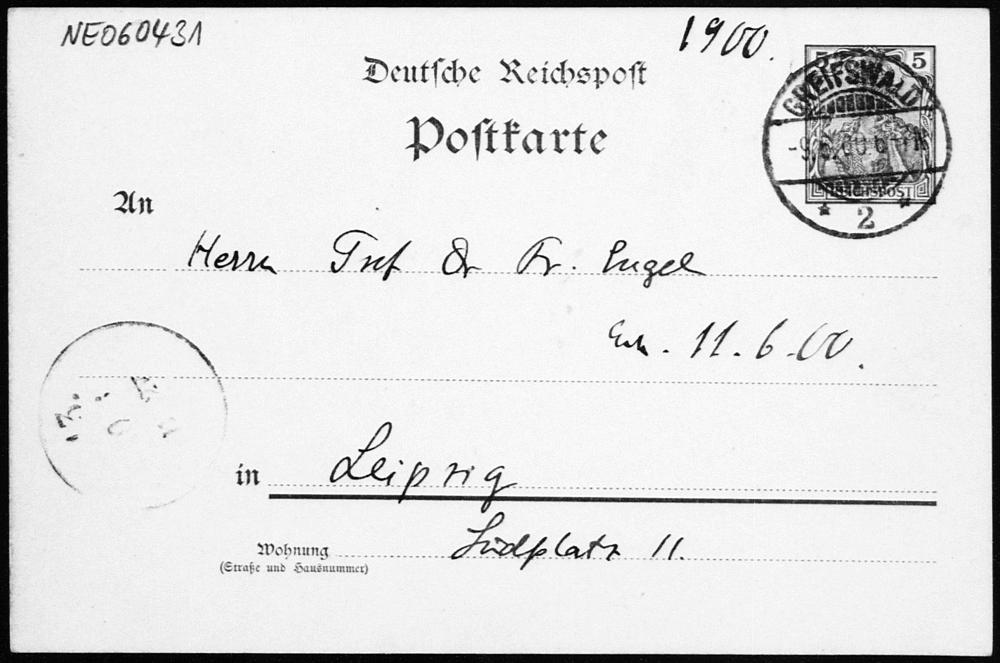 NE060431
1900.
5 5
GREIFSWALD
-9.6.00 6-7N
REICHSPOST
* 2 *
Deutsche Reichspost
Postkarte
An
Herrn Prof Dr Fr. Engel
11.6.00.
in Leipzig
Wohnung Südplatz 11.
(Straße und Hausnummer)